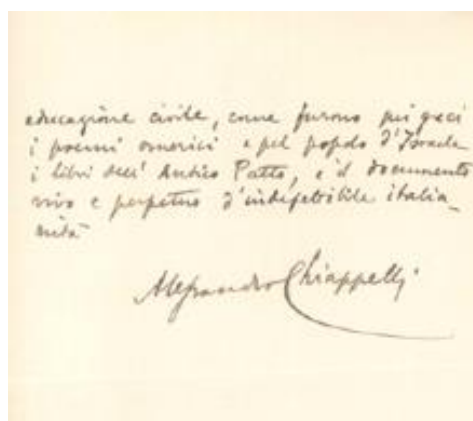 educazione civile, come furono pei greci
i poemi omerici e pel popolo d'Israele
i libri dell'Antico Patto, e il documento
vivo e perpetuo d'indefettibile italia_
nità
Alessandro Chiappelli